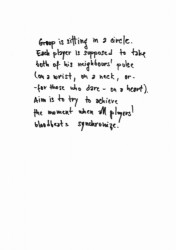 Group is sitting in a circle.
Each player is supposed to take
both of his neighbours' pulse
(on a wrist, on a neck, or -
- for those who dare - on a heart).
Aim is to try to achieve
the moment when all players'
bloodbeats synchronize.